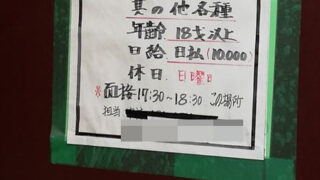 其の他各種
年齢 18才以上
日給 日払(10.000)
休日 日曜日
※面接 17:30~18:30 この場所
担当